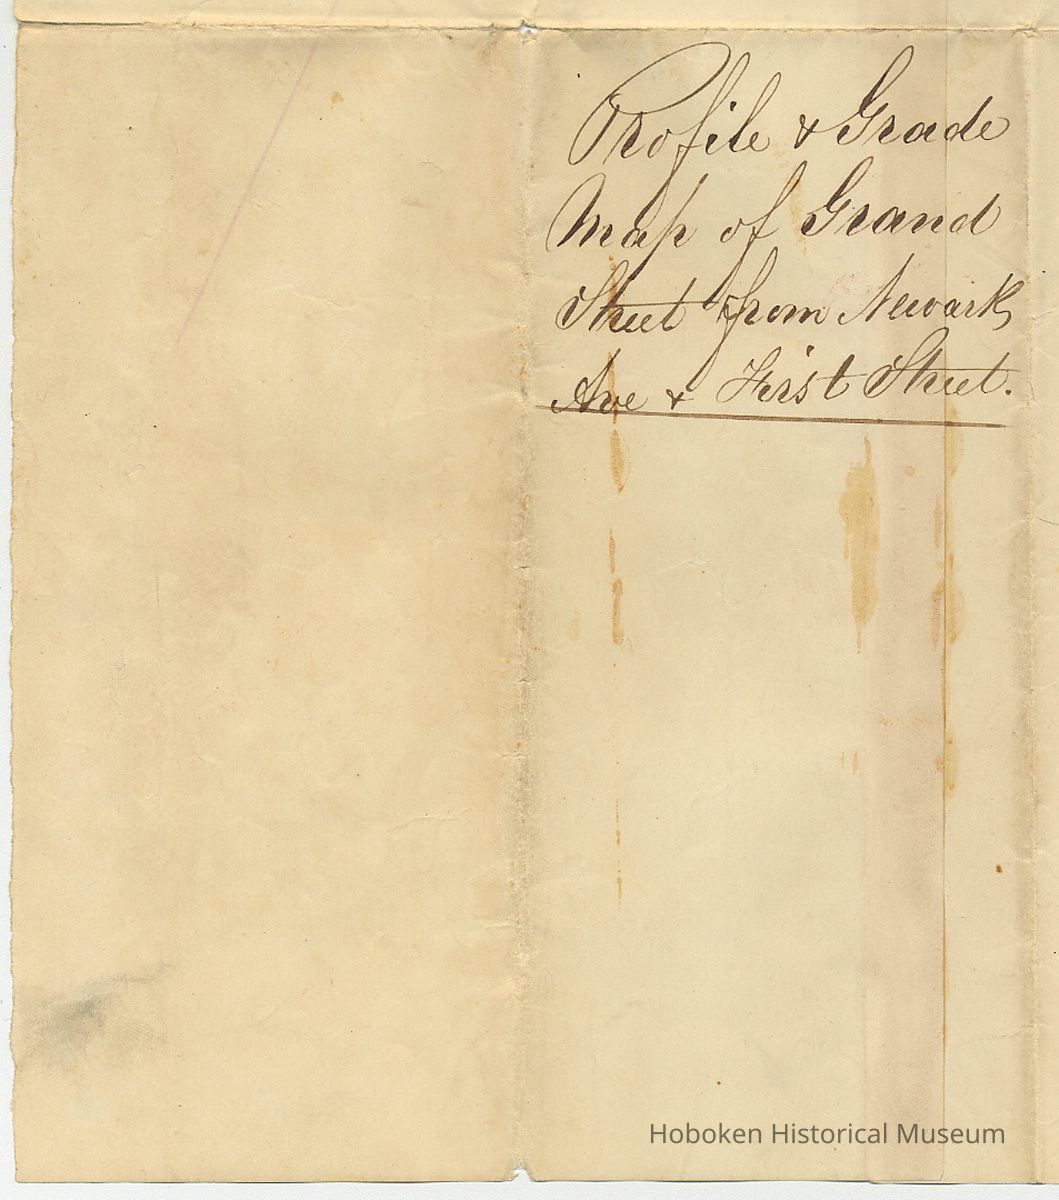 Profile & Grade
Map of Grand
Street from Newark
Ave & First Street.
Hoboken Historical Museum